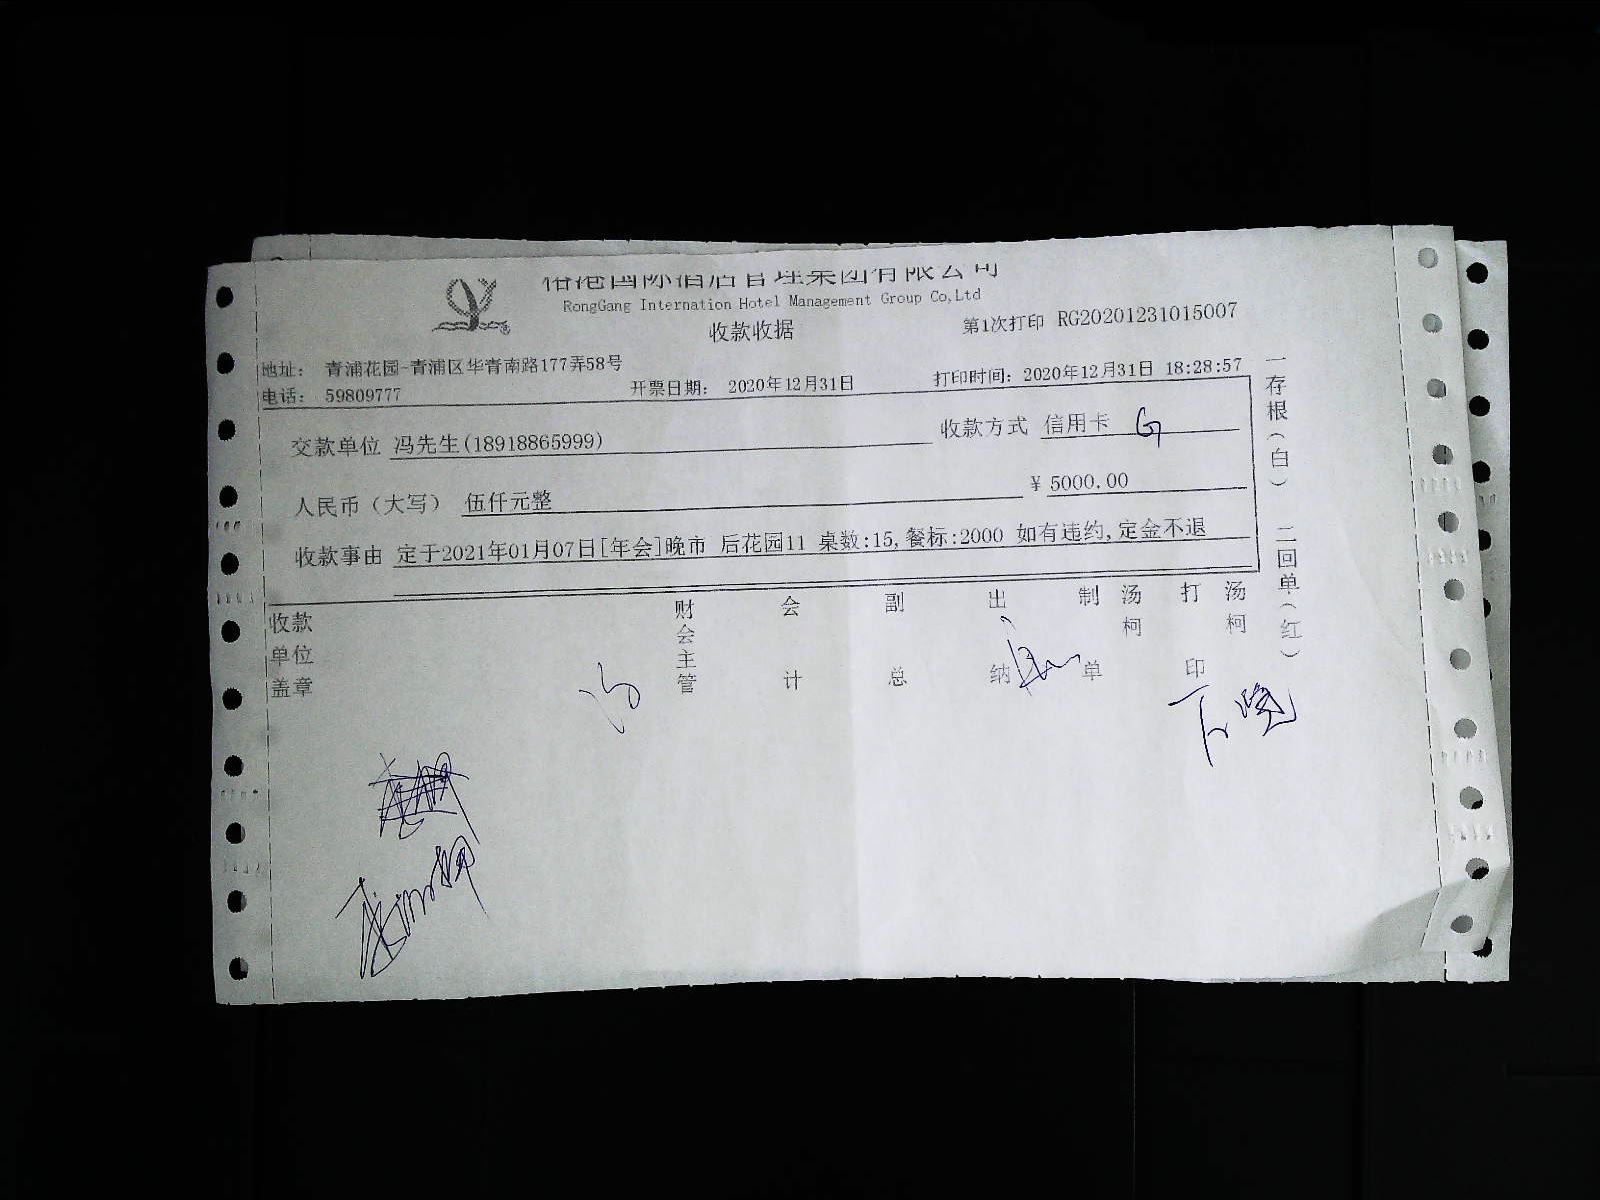 国际酒店管理集团有限公司
RongGang Internation Hotel Management Group Co,Ltd
收款收据
第1次打印 RG20201231015007
地址： 青浦花园~青浦区华青南路177弄58号
电话： 59809777
开票日期： 2020年12月31日
打印时间：2020年12月31日 18:28:57
交款单位 冯先生(18918865999)
收款方式 信用卡 G
人民币（大写） 伍仟元整
¥ 5000.00
收款事由 定于2021年01月07日[年会]晚市 后花园11 桌数:15,餐标:2000 如有违约,定金不退
收款单位盖章
财会主管
会计
副总
出纳
制单
汤柯
打印
汤柯
一存根（白） 二回单（红）